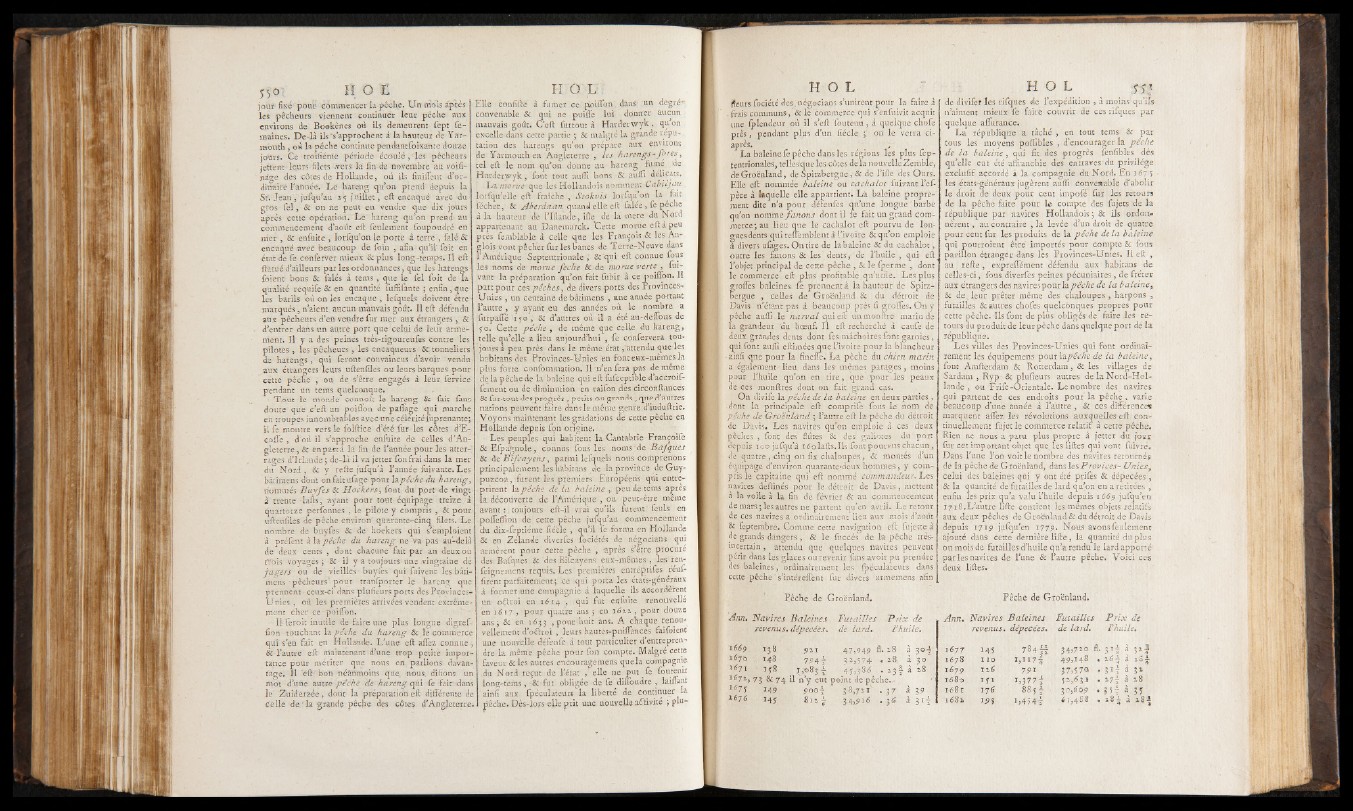 550 HOL
jour fixé pour commencer la pêche. Un mois après
les pêcheurs viennent continuer leur pêche aux
environs de Bookènes où ils demeurent sept se-
maines. De-là ils s'approchent à la hauteur de Yar-
mouth, où la pêche continue pendant soixante-douze
jours. Ce troisième période écoulé, les pêcheurs
jettent leurs filets vers la fin de novembre au voisi-
nage des côtes de Hollande, où ils finissent d'or-
dinaire l'année. Le hareng qu'on prend depuis la
St. Jean, jusqu'au 25 juillet, est encaqué avec du
gros sel, & on ne peut en vendre que dix jours
après cette opération. Le hareng qu'on prend au
commencement d'août est seulement soupoudré en
mer, & ensuite, lorsqu'on le porte à terre, salé &
encaqué avec beaucoup de soin, afin qu'il soit en
état de se conserver mieux & plus long-temps. Il est
statué d'ailleurs par les ordonnances, que les harengs
soient bons & salés à tems, que le sel soit de la
qualité requise & en quantité suffisante ; enfin, que
les barils où on les encaque, lesquels doivent être
marqués, n'aient aucun mauvais goût. Il est défendu
aux pêcheurs d'en vendre sur mer aux étrangers, &
d'entrer dans un autre port que celui de leur arme-
ment. Il y a des peines très-rigoureuses contre les
pilotes, les pêcheurs, les encaqueurs & tonneliers
de harengs, qui seront convaincus d'avoir vendu
aux étrangers leurs ustensiles ou leurs barques pour
cette pêche, ou de s'être engagés à leur service
pendant un tems quelconque.
Tout le monde connoît le hareng & sait sans
doute que c'est un poisson de passage qui marche
en troupes innombrables avec une célérité surprenante;
il se montre vers le solstice d'été sur les côtes d'É-
cosse, d'où il s'approche ensuite de celles d'An-
gleterre, & en part à la fin de l'année pour les atter-
rages d'Irlande; de-là il va jetter son frai dans la mer
du Nord, & y reste jusqu'à l'année suivante. Les
bâtimens dont on fait usage pour la pêche du hareng,
nommés Buyses & Hoekers, sont du port de vingt
à trente lasts, ayant pour tout équipage treize à
quatorze personnes, le pilote y compris, & pour
ustensiles de pêche environ quarante-cinq filets. Le
nombre de buyses & de hoekers qui s'emploient
à présent à la pêche du hareng ne va pas au-delà
de deux cents, dont chacune fait par an deux ou
trois voyages; & il y a toujours une vingtaine de
jagers ou de vieilles buyses qui suivent les bâti-
mens pêcheurs pour transporter le hareng que
prennent ceux-ci dans plusieurs ports des Provinces-
Unies, où les premières arrivées vendent extrême-
ment cher ce poisson.
Il seroit inutile de faire une plus longue digres-
sion touchant la pêche du hareng & le commerce
qui s'en fait en Hollande. L'une est assez connue;
& l'autre est maintenant d'une trop petite impor-
tance pour mériter que nous en parlions davan-
tage. Il est bon néanmoins que nous disions un
mot d'une autre pêche de hareng qui se fait dans
le Zuiderzée, dont la préparation est différente de
celle de la grande pêche des côtes d'Angleterre.
HOL
Elle consiste à fumer ce poisson dans un degré
convenable & qui ne puisse lui donner aucun
mauvais goût. C'est surtout à Harderwyk, qu'on
excelle dans cette partie ; & malgré la grande répu-
tation des harengs qu'on prépare aux environs
de Yarmouth en Angleterre, les harengs-sorets,
tel est le nom qu'on donne au hareng fumé de
Harderwyk, sont tout aussi bons & aussi délicats.
La morue que les Hollandois nomment Cabiljau
lorsqu'elle est fraîche, Stokvis lorsqu'on la fait
sécher, & Aberdaan quand elle est salée, se pêche
à la hauteur de l'Islande, isle de la mer du Nord
appartenant au Danemarck. Cette morue est à peu
près semblable à celle que les François & les An-
glois vont pêcher sur les bancs de Terre-Neuve dans
l'Amérique Septentrionale, & qui est connue sous
les noms de morue sèche & de morue verte, sui-
vant la préparation qu'on fait subir à ce poisson. Il
part pour ces pêches, de divers ports des Provinces-
Unies, un centaine de bâtimens, une année portant
l'autre, y ayant eu des années où le nombre a
surpassé 150, & d'autres où il a été au-dessous de
50. Cette pêche, de même que celle du hareng,
telle qu'elle a lieu aujourd'hui, se conservera tou-
jours à peu près dans le même état, attendu que les
habitans des Provinces-Unies en font eux-mêmes la
plus forte consommation. Il n'en sera pas de même
de la pêche de la baleine qui est susceptible d'accroiss-
sement ou de diminution en raison des circonstances
& sur-tout des progrès, petits ou grands, que d'autres
nations peuvent faire dans le même genre d'industrie.
Voyons maintenant les gradations de cette pêche en
Hollande depuis son origine.
Les peuples qui habitent la Cantabrie Françoise
& Espagnole, connus sous les noms de Basques
& de Biscayens, parmi lesquels nous comprenons
principalement les habitans de la province de Guy-
puzcoa, furent les premiers Européens qui entre-
prirent la pêche de la baleine, peu de tems après
la découverte de l'Amérique, ou peut-être même
avant : toujours est-il vrai qu'ils furent seuls en
possession de cette pêche jusqu'au commencement
du dix-septième siècle, qu'il se forma en Hollande
& en Zélande diverses sociétés de négocians qui
armèrent pour cette pêche, après s'être procuré
des Basques & des Biscayens eux-mêmes, les ren-
seignemens requis. Les premières entreprises réus-
sirent parfaitement; ce qui porta les états-généraux
à former une compagnie à laquelle ils accordèrent
un octroi en 1614, qui fut ensuite renouvellé
en 1617, pour quatre ans ; en 1622, pour douze
ans ; & en 1633, pour huit ans. A chaque renou-
vellement d'octroi, leurs hautes-puissances faisoient
une nouvelle défense à tout particulier d'entrepren-
dre la même pêche pour son compte. Malgré cette
faveur & les autres encouragemens que la compagnie
du Nord reçut de l'état, elle ne put se soutenir
long-tems, & fut obligée de se dissoudre, laissant
ainsi aux spéculateurs la liberté de continuer la
pêche. Dès-lors elle prit une nouvelle activité ; plu-
HOL
sieurs société des négocians s'unirent pour la faire à
frais communs, & le commerce qui s'ensuivit acquit
une splendeur où il s'est soutenu, à quelque chose
près, pendant plus d'un siècle ; on le verra ci-
après.
La baleine se pêche dans les régions les plus sep-
tentrionales, telles que les côtes de la nouvelle Zemble,
de Groënland, de Spitzbergue, & de l'isle des Ours.
Elle est nommée baleine ou cachalot suivant l'es-
pèce à laquelle elle appartient. La baleine propre-
ment dite n'a pour défenses qu'une longue barbe
qu'on nomme fanons dont il se fait un grand com-
merce; au lieu que le cachalot est pourvu de lon-
gues dents qui ressemblent à l'ivoire & qu'on emploie
à divers usages. On tire de la baleine & du cachalot,
outre les fanons & les dents, de l'huile, qui est
l'objet principal de cette pêche, & le sperme, dont
le commerce est plus profitable qu'utile. Les plus
grosses baleines se prennent à la hauteur de Spitz-
bergue, celles de Groënland & du détroit de
Davis n'étant pas à beaucoup près si grosses. On y
pêche aussi le narval qui est un monstre marin de
la grandeur du bœuf. Il est recherché à cause de
deux grandes dents dont ses mâchoires sont garnies,
qui sont aussi estimées que l'ivoire pour la blancheur
ainsi que pour la finesse. La pêche du chien marin
a également lieu dans les mêmes parages, moins
pour l'huile qu'on en tire, que pour les peaux
de ces monstres dont on fait grand cas.
On divise la pêche de la baleine en deux parties,
dont la principale est comprise sous le nom de
pêche de Groënland ; l'autre est la pêche du détroit
de Davis. Les navires qu'on emploie à ces deux
pêches, sont des flûtes & des galiotes du port
depuis 100 jusqu'à 160 lasts. Ils sont pourvus chacun,
de quatre, cinq ou six chaloupes, & montés d'un
équipage d'environ quarante-deux hommes, y com-
pris le capitaine qui est nommé commandeur. Les
navires destinés pour le détroit de Davis, mettent
à la voile à la fin de février & au commencement
de mars; les autres ne partent qu'en avril. Le retour
de ces navires a ordinairement lieu aux mois d'août
& septembre. Comme cette navigation est sujette à
de grands dangers, & le succès de la pêche très-
incertain, attendu que quelques navires peuvent
périr dans les glaces ou revenir sans avoir pu prendre
des baleines, ordinairement les spéculateurs dans
cette pêche s'intéressent sur divers armemens afin
Pêche de Groënland.
Ann. Navires Baleines Futailles Prix de
revenus. dépecées. de lard. l'huile.
1669 138 921 47,949 fl. 28 à 30½
1670 148 794½ 32,574 . 28 à 30
1671 158 1,083½ 45,786 . 25½ à 28
1672, 73 & 74 il n'y eut point de pêche.
1675 149 900½ 38,721 . 37 à 39
1676 145 812½ 34,916 . 36 à 31½
HOL 551
de diviser les risques de l'expédition, à moins qu'ils
n'aiment mieux se faire couvrir de ces risques par
quelque assurance.
La république a tâché, en tout tems & par
tous les moyens possibles, d'encourager la pêche
de la baleine, qui fit des progrès sensibles dès
qu'elle eut été affranchie des entraves du privilége
exclusif accordé à la compagnie du Nord. En 1675
les états-généraux jugèrent aussi convenable d'abolir
le droit de deux pour cent imposé sur les retours
de la pêche faite pour le compte des sujets de la
république par navires Hollandois; & ils ordon-
nèrent, au contraire, la levée d'un droit de quatre
pour cent sur les produits de la pêche de la baleine
qui pourroient être importés pour compte & sous
pavillon étranger dans les Provinces-Unies. Il est,
au reste, expressément défendu aux habitans de
celles-ci, sous diverses peines pécuniaires, de fréter
aux étrangers des navires pour la pêche de la baleine,
& de leur prêter même des chaloupes, harpons,
futailles & autres choses quelconques propres pour
cette pêche. Ils sont de plus obligés de faire les re-
tours du produit de leur pêche dans quelque port de la
république.
Les villes des Provinces-Unies qui font ordinai-
rement les équipemens pour la pêche de la baleine,
sont Amsterdam & Rotterdam, & les villages de
Sardam, Ryp & plusieurs autres de la Nord-Hol-
lande, ou Frise-Orientale. Le nombre des navires
qui partent de ces endroits pour la pêche, varie
beaucoup d'une année à l'autre, & ces différences
marquent assez les révolutions auxquelles est con-
tinuellement sujet le commerce relatif à cette pêche.
Rien ne nous a paru plus propre à jetter du jour
sur cet important objet que les listes qui vont suivre.
Dans l'une l'on voit le nombre des navires retournés
de la pêche de Groënland, dans les Provinces-Unies,
celui des baleines qui y ont été prises & dépecées,
& la quantité de futailles de lard qu'on en a retirées,
enfin les prix qu'a valu l'huile depuis 1669 jusqu'en
1718. L'autre liste contient les mêmes objets relatifs
aux deux pêches de Groënland & du détroit de Davis
depuis 1719 jusqu'en 1779. Nous avons seulement
ajouté dans cette dernière liste, la quantité du plus
ou moins de futailles d'huile qu'a rendu le lard apporté
par les navires de l'une & l'autre pêche. Voici ces
deux listes.
Pêche de Groënland.
Ann. Navires Baleines Futailles Prix de
revenus. dépecées. de lard. l'huile.
1677 145 34,720 fl.
1678 110 49,148
1679 126 791 37,570
1680 151 52,631
1681 176 30,609
1682 195